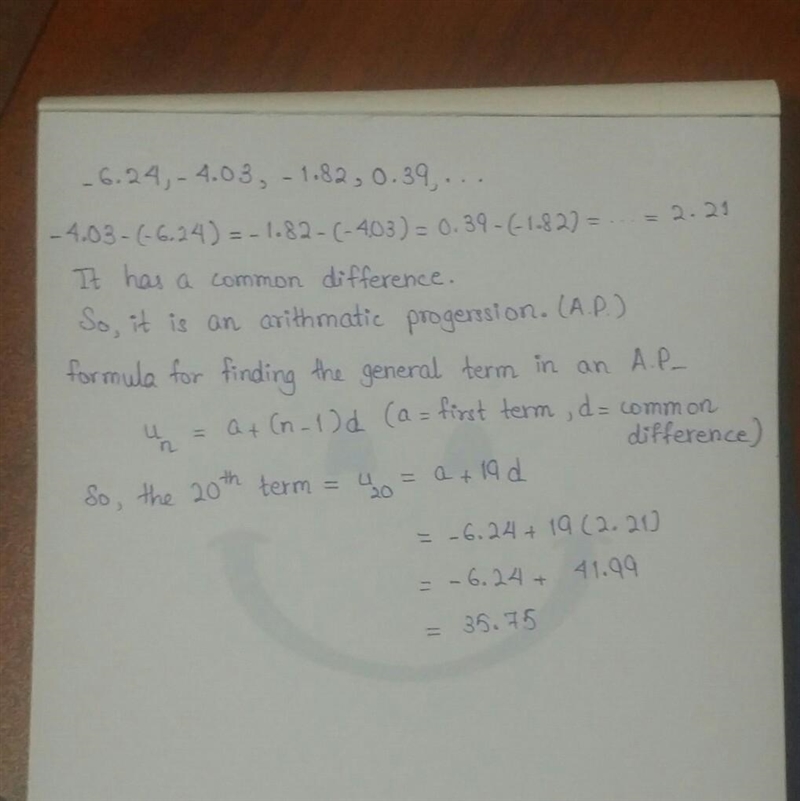 -6.24, -4.03, -1.82, 0.39, ...
-4.03-(-6.24) = -1.82-(-4.03) = 0.39-(-1.82) = ... = 2.21
It has a common difference.
So, it is an arithmatic progerssion. (A.P.)
formula for finding the general term in an A.P-
u_n = a+(n-1)d (a = first term, d = common
difference)
So, the 20th term = u_20 = a + 19d
= -6.24 + 19(2.21)
= -6.24 + 41.99
= 35.75